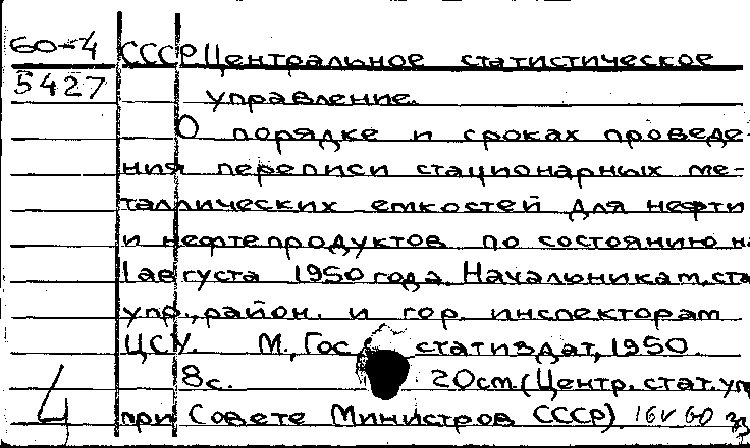 60-4 СССР Центральное статистическое
5427 управление.
О порядке и сроках проведе-
ния переписи стационарных ме-
таллических емкостей для нефти
и нефтепродуктов по состоянию на
1 августа 1950 года. Начальникам, ста
упр., район. и гор. инспекторам
ЦСУ. М., Гос. статиздат, 1950.
8с. 20см (Центр. стат. уп
4 при Совете Министров СССР). 16V 60